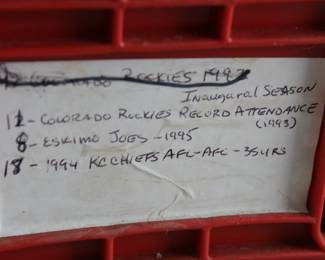 COLORADO ROCKIES 1993
Inaugural Season
12 - COLORADO ROCKIES RECORD ATTENDANCE
(1993)
8 - ESKIMO JOES - 1995
18 - 1994 KC CHIEFS AFL-AFC - 35 YRS